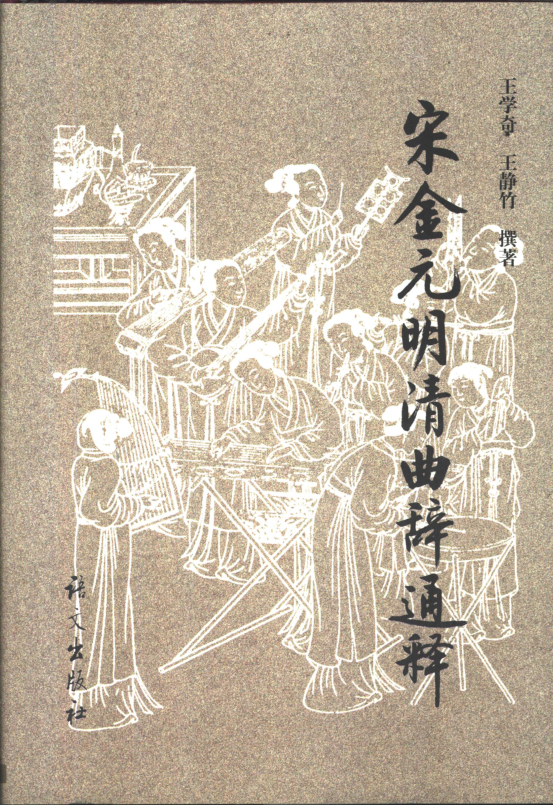 王学奇 王静竹 撰著
宋金元明清曲辞通释
语文出版社